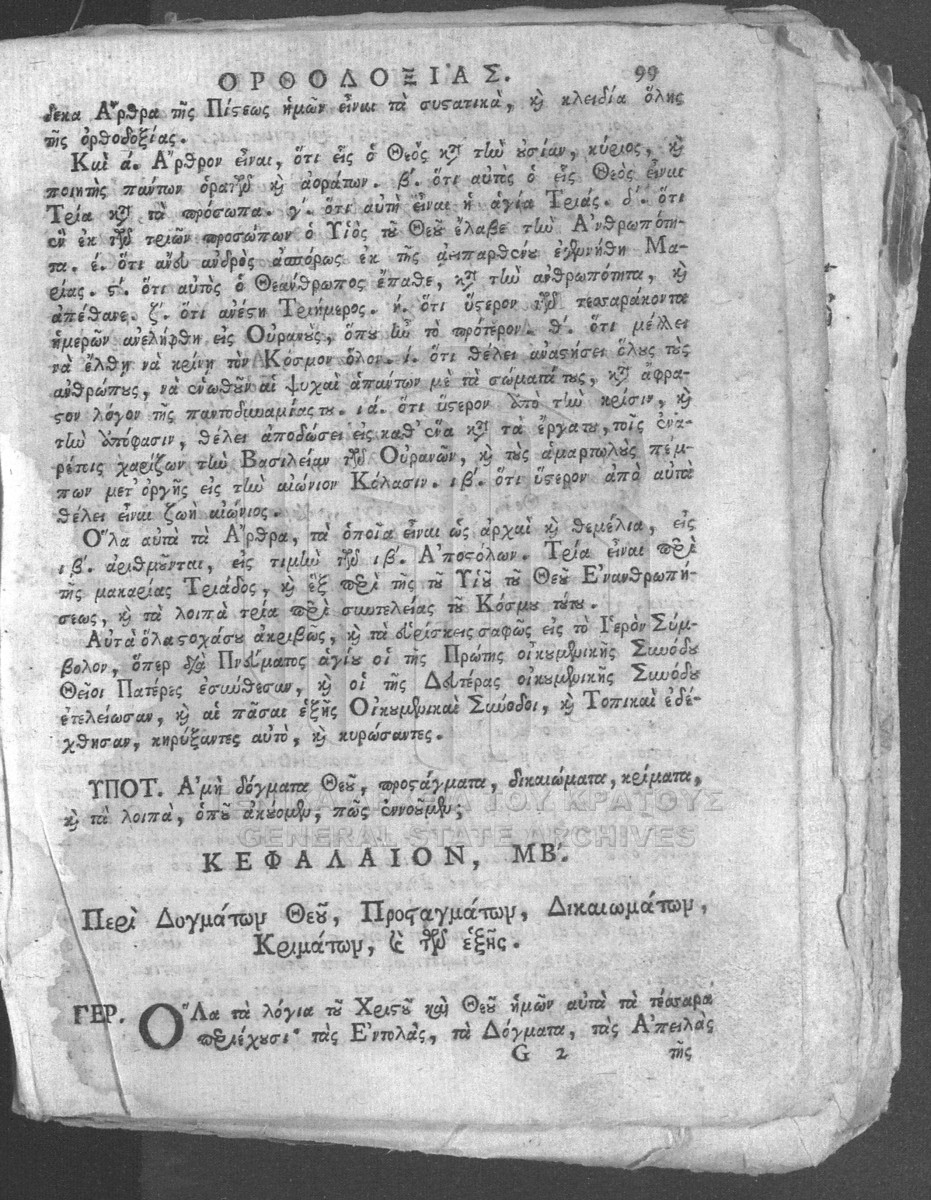 ΟΡΘΟΔΟΞΙΑΣ. 99
δεκα Ἄρθρα τῆς Πίςεως ἡμῶν εἶναι τὰ συςατικὰ, ϗ̀ κλειδία ὅλης
τῆς ὀρθοδοξίας.
Καὶ ά. Ἄρθρον εἶναι, ὅτι εἷς ὁ Θεὸς κτ̀ τἰω ȣσίαν, κύριος, ϗ̀
ποιητὴς πάντων ὁρατῶν ϗ̀ ἀοράτων. β΄. ὅτι αὐτὸς ὁ εἷς Θεὸς εἶναι
Τρία κτ̀ τὰ πρόσωπα. γ΄. ὅτι αὐτὴ εἶναι ἡ ἁγία Τριάς. δ΄. ὅτι
ἓν ἐκ τῶν τριῶν προσώπων ὁ Υἱὸς τȣ͂ Θεȣ͂ ἔλαβε τἰω Ἀνθρωπότη-
τα. έ. ὅτι ἄνευ ἀνδρὸς ἀσπόρως ἐκ τῆς ἀειπαρθένȣ ἐγεννήθη Μα-
ρίας. ϛ΄. ὅτι αὐτὸς ὁ Θεάνθρωπος ἔπαθε, κτ̀ τἰω ἀνθρωπότητα, ϗ̀
ἀπέθανε. ζ΄. ὅτι ἀνέςη Τριήμερος. ή. ὅτι ὕςερον τῶν τεσσαράκοντα
ἡμερῶν ἀνελήφθη εἰς Οὐρανȣ̀ς, ὅπȣ ἦν τὸ πρότερον. θ΄. ὅτι μέλλει
νὰ ἔλθῃ νὰ κρίνῃ τὸν Κόσμον ὅλον. ί. ὅτι θέλει ἀναςήσει ὅλȣς τȣ̀ς
ἀνθρώπȣς, νὰ ἑνωθȣ͂ν αἱ ψυχαὶ ἁπάντων μὲ τὰ σώματάτȣς, κτ̀ ἄφρα-
ςον λόγον τῆς παντοδυναμίαςτȣ. ιά. ὅτι ὕςερον ἀπὸ τἰω κρίσιν, ϗ̀
τἰω ἀπόφασιν, θέλει ἀποδώσει εἰς καθ᾽ ἕνα κτ̀ τὰ ἔργατȣ, τοῖς ἐνα-
ρέτοις χαρίζων τἰω Βασιλείαν τῶν Οὐρανῶν, ϗ̀ τȣ̀ς ἁμαρτωλȣ̀ς πέμ-
πων μετ᾽ ὀργῆς εἰς τἰω αἰώνιον Κόλασιν. ιβ΄. ὅτι ὕςερον ἀπὸ αὐτὰ
θέλει εἶναι ζωὴ αἰώνιος.
Ὅλα αὐτὰ τὰ Ἄρθρα, τὰ ὁποῖα εἶναι ὡς ἀρχαὶ ϗ̀ θεμέλια, εἰς
ιβ΄. ἀριθμȣ͂νται, εἰς τιμἰω τῶν ιβ΄. Ἀποςόλων. Τρία εἶναι περὶ
τῆς μακαρίας Τριάδος, ϗ̀ ἓξ περὶ τῆς τȣ͂ Υἱȣ͂ τȣ͂ Θεȣ͂ Ἐνανθρωπή-
σεως, ϗ̀ τὰ λοιπὰ τρία περὶ συντελείας τȣ͂ Κόσμȣ τȣ́τȣ.
Αὐτὰ ὅλα ςοχάσȣ ἀκριβῶς, ϗ̀ τὰ εὑρίσκεις σαφῶς εἰς τὸ Ἱερὸν Σύμ-
βολον, ὅπερ διὰ Πνεύματος ἁγίȣ οἱ τῆς Πρώτης οἰκȣμενικῆς Συνόδȣ
Θεῖοι Πατέρες ἐσυνθεσαν, ϗ̀ οἱ τῆς Δευτέρας οἰκȣμενικῆς Συνόδȣ
ἐτελείωσαν, ϗ̀ αἱ πᾶσαι ἑξῆς Οἰκȣμενικαὶ Σύνοδοι, ϗ̀ Τοπικαὶ ἐδέ-
χθησαν, κηρύξαντες αὐτὸ, ϗ̀ κυρώσαντες.
ΥΠΟΤ. Ἀμὴ δόγματα Θεȣ͂, προςάγματα, δικαιώματα, κρίματα,
ϗ̀ τὰ λοιπὰ, ὁπȣ͂ ἀκȣ́ομεν, πῶς ἐννοȣ͂μεν;
ΓΕΝΙΚΑ ΑΡΧΕΙΑ ΤΟΥ ΚΡΑΤΟΥΣ
GENERAL STATE ARCHIVES
ΚΕΦΑΛΑΙΟΝ, ΜΒ΄.
Περὶ Δογμάτων Θεȣ͂, Προςαγμάτων, Δικαιωμάτων,
Κριμάτων, ϗ̀ τῶν ἑξῆς.
ΓΕΡ. Ὅλα τὰ λόγια τȣ͂ Χριςȣ͂ καὶ Θεȣ͂ ἡμῶν αὐτὰ τὰ τέσσαρα
περιέχȣσι· τὰς Ἐντολὰς, τὰ Δόγματα, τὰς Ἀπειλὰς
G 2 τῆς